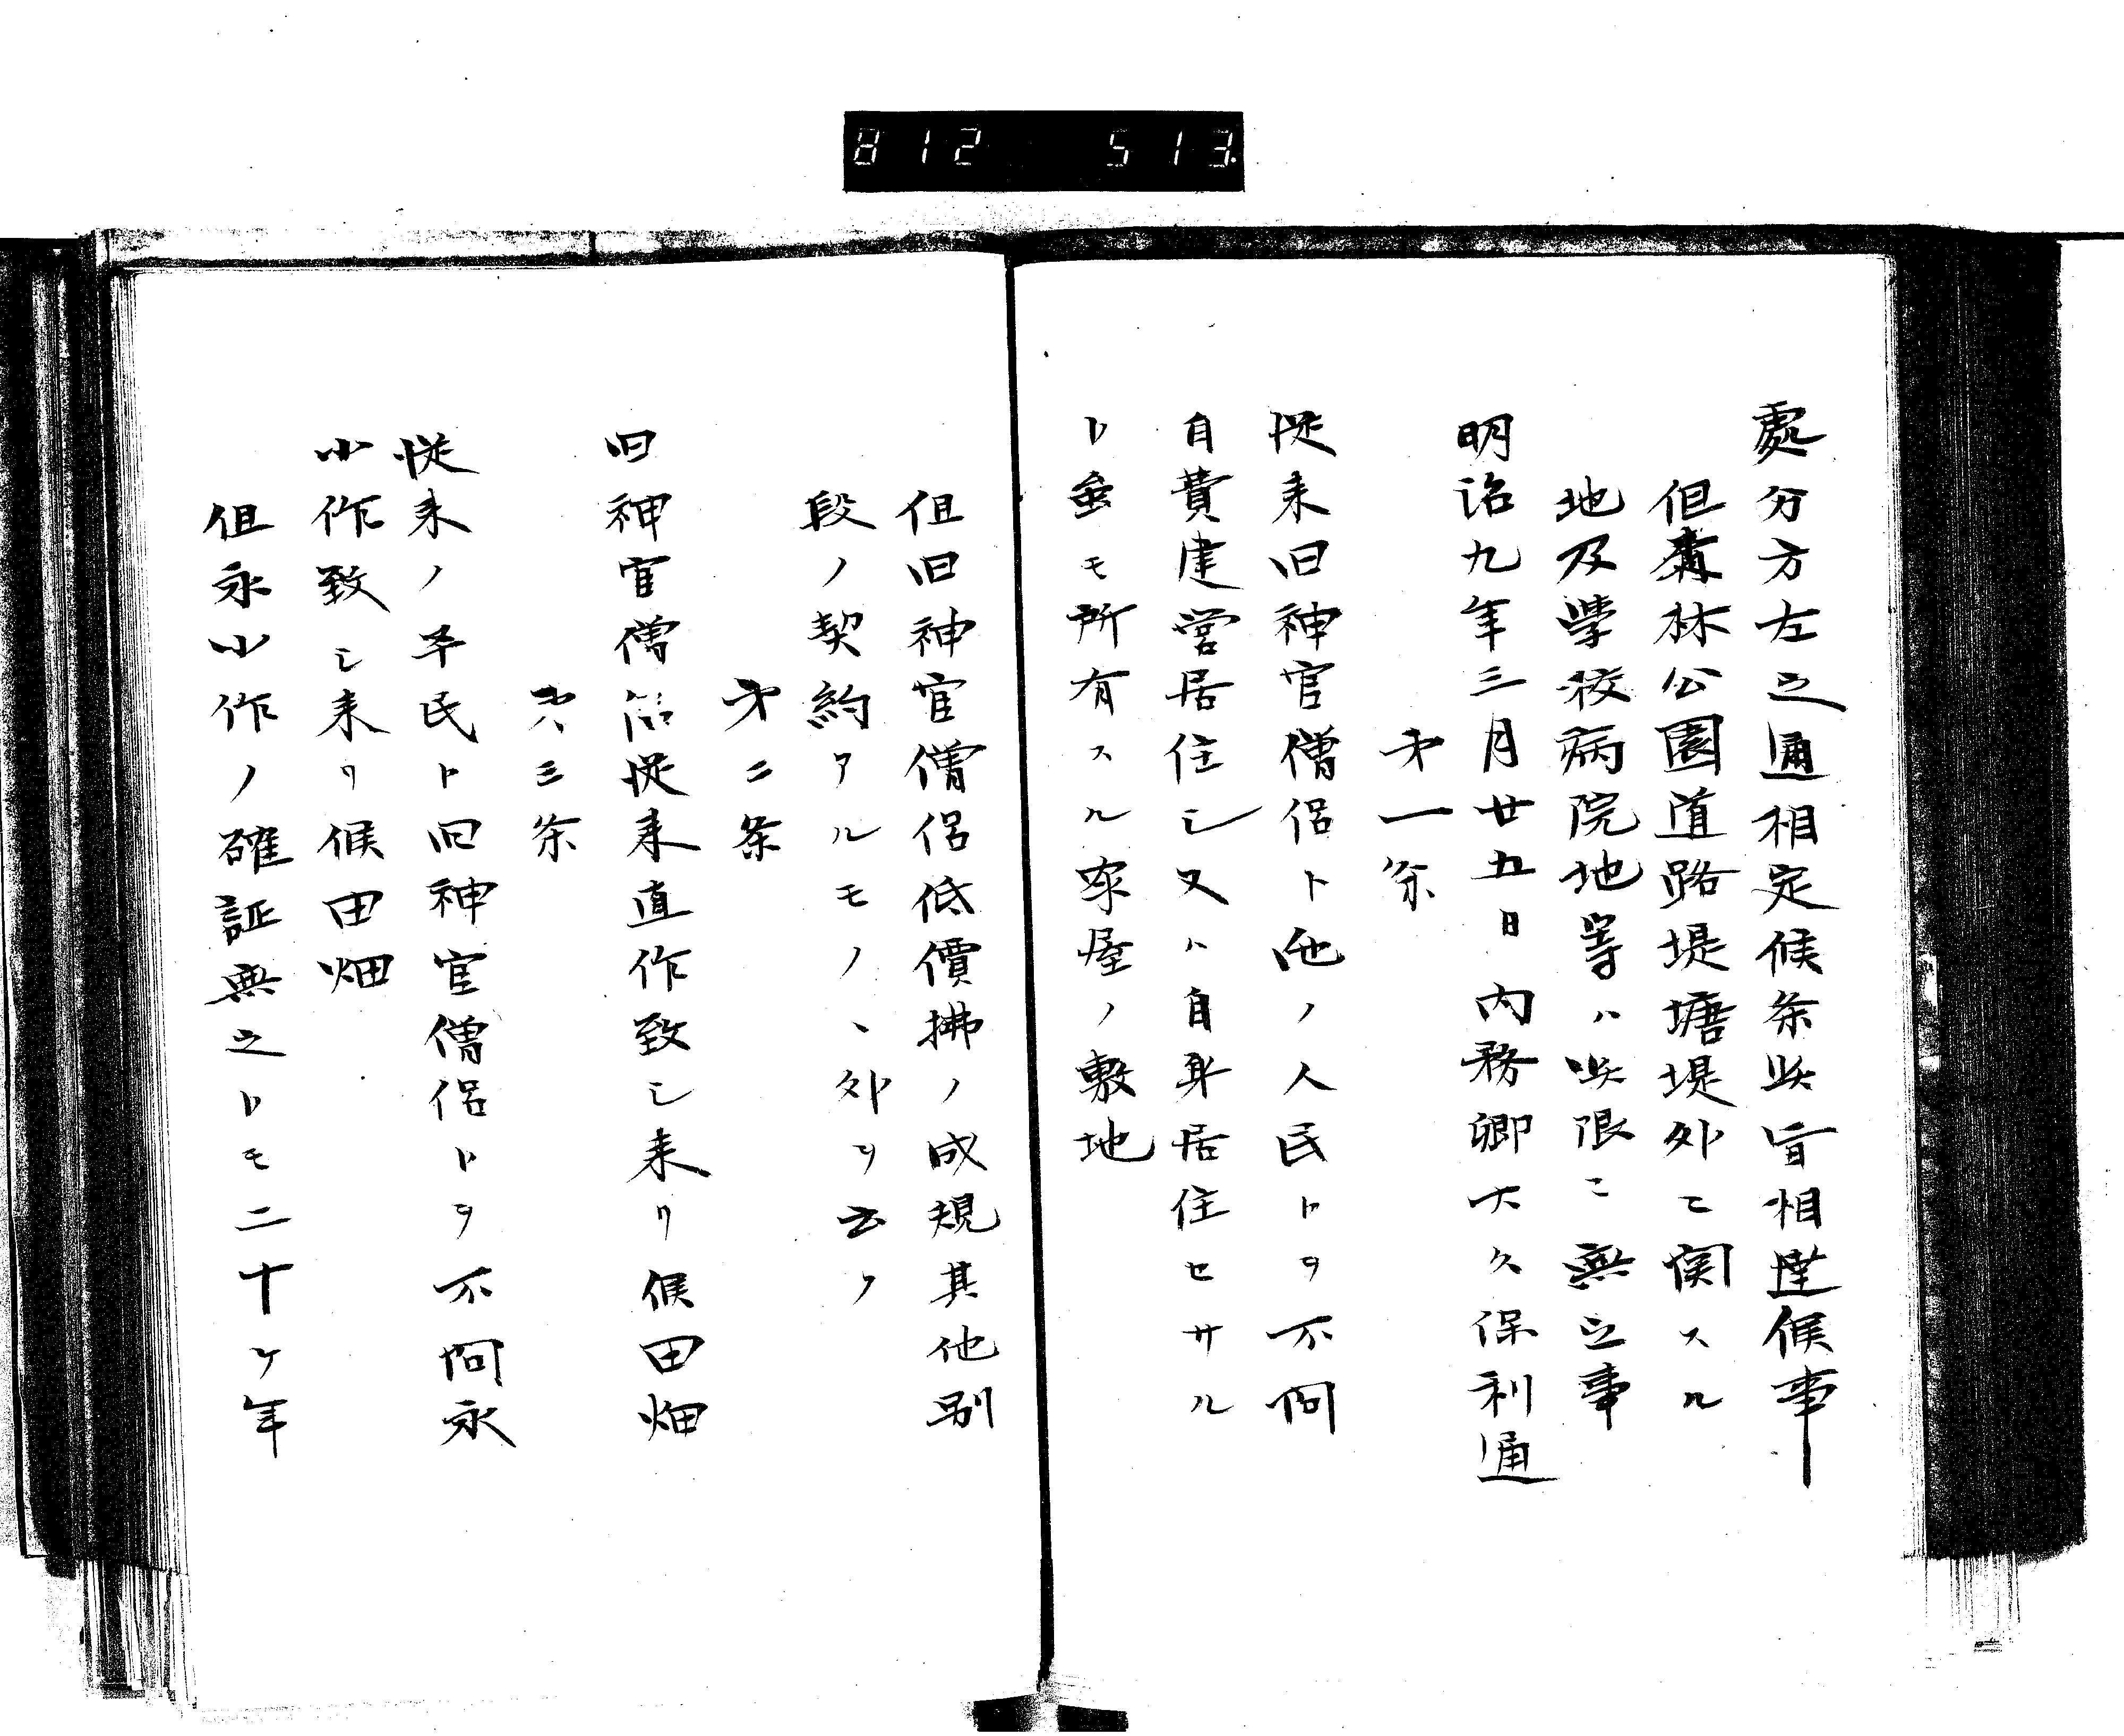 812 513
處分方左之通相定候条此旨相達候事
但森林公園道路堤塘堤外ニ関スル
地及学校病院地等ハ此限ニ無之事
明治九年三月廿五日内務卿大久保利通
才一条
従来旧神官僧侶ト他ノ人民トヲ不問
自費建営居住シ又ハ自身居住セサル
ト虽モ所有スル家屋ノ敷地
但旧神官僧侶低價拂ノ成規其他別
段ノ契約アルモノヽ外ヲ云フ
才二条
旧神官僧侶従来直作致シ来リ候田畑
第三条
従来ノ平民ト旧神官僧侶トヲ不問永
小作致シ来リ候田畑
但永小作ノ確証無之トモ二十ケ年